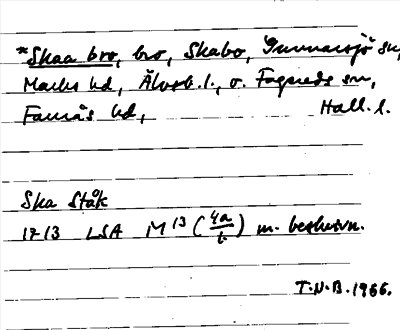 *Skaa bro, bro, Skabo, Gunnarsjö sn,
Marks hd, Älvsb. l., o. Fagereds sn,
Faurås hd, Hall. l.
Ska Ståk
1713 LSA M 13 (4a/1) m. beskrivn.
T.N.B. 1966.